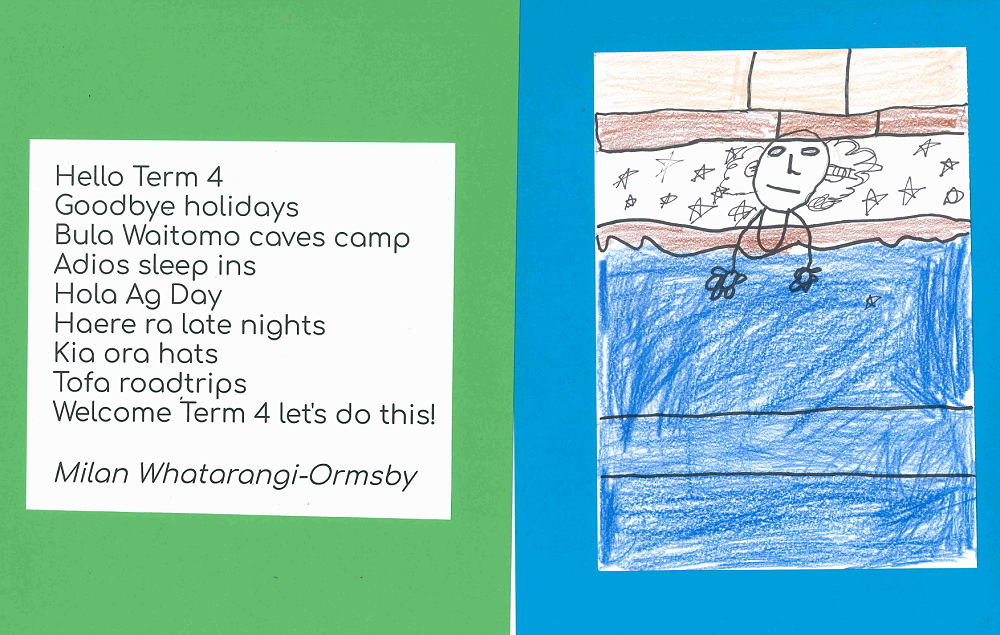 Hello Term 4
Goodbye holidays
Bula Waitomo caves camp
Adios sleep ins
Hola Ag Day
Haere ra late nights
Kia ora hats
Tofa roadtrips
Welcome Term 4 let's do this!
Milan Whatarangi-Ormsby